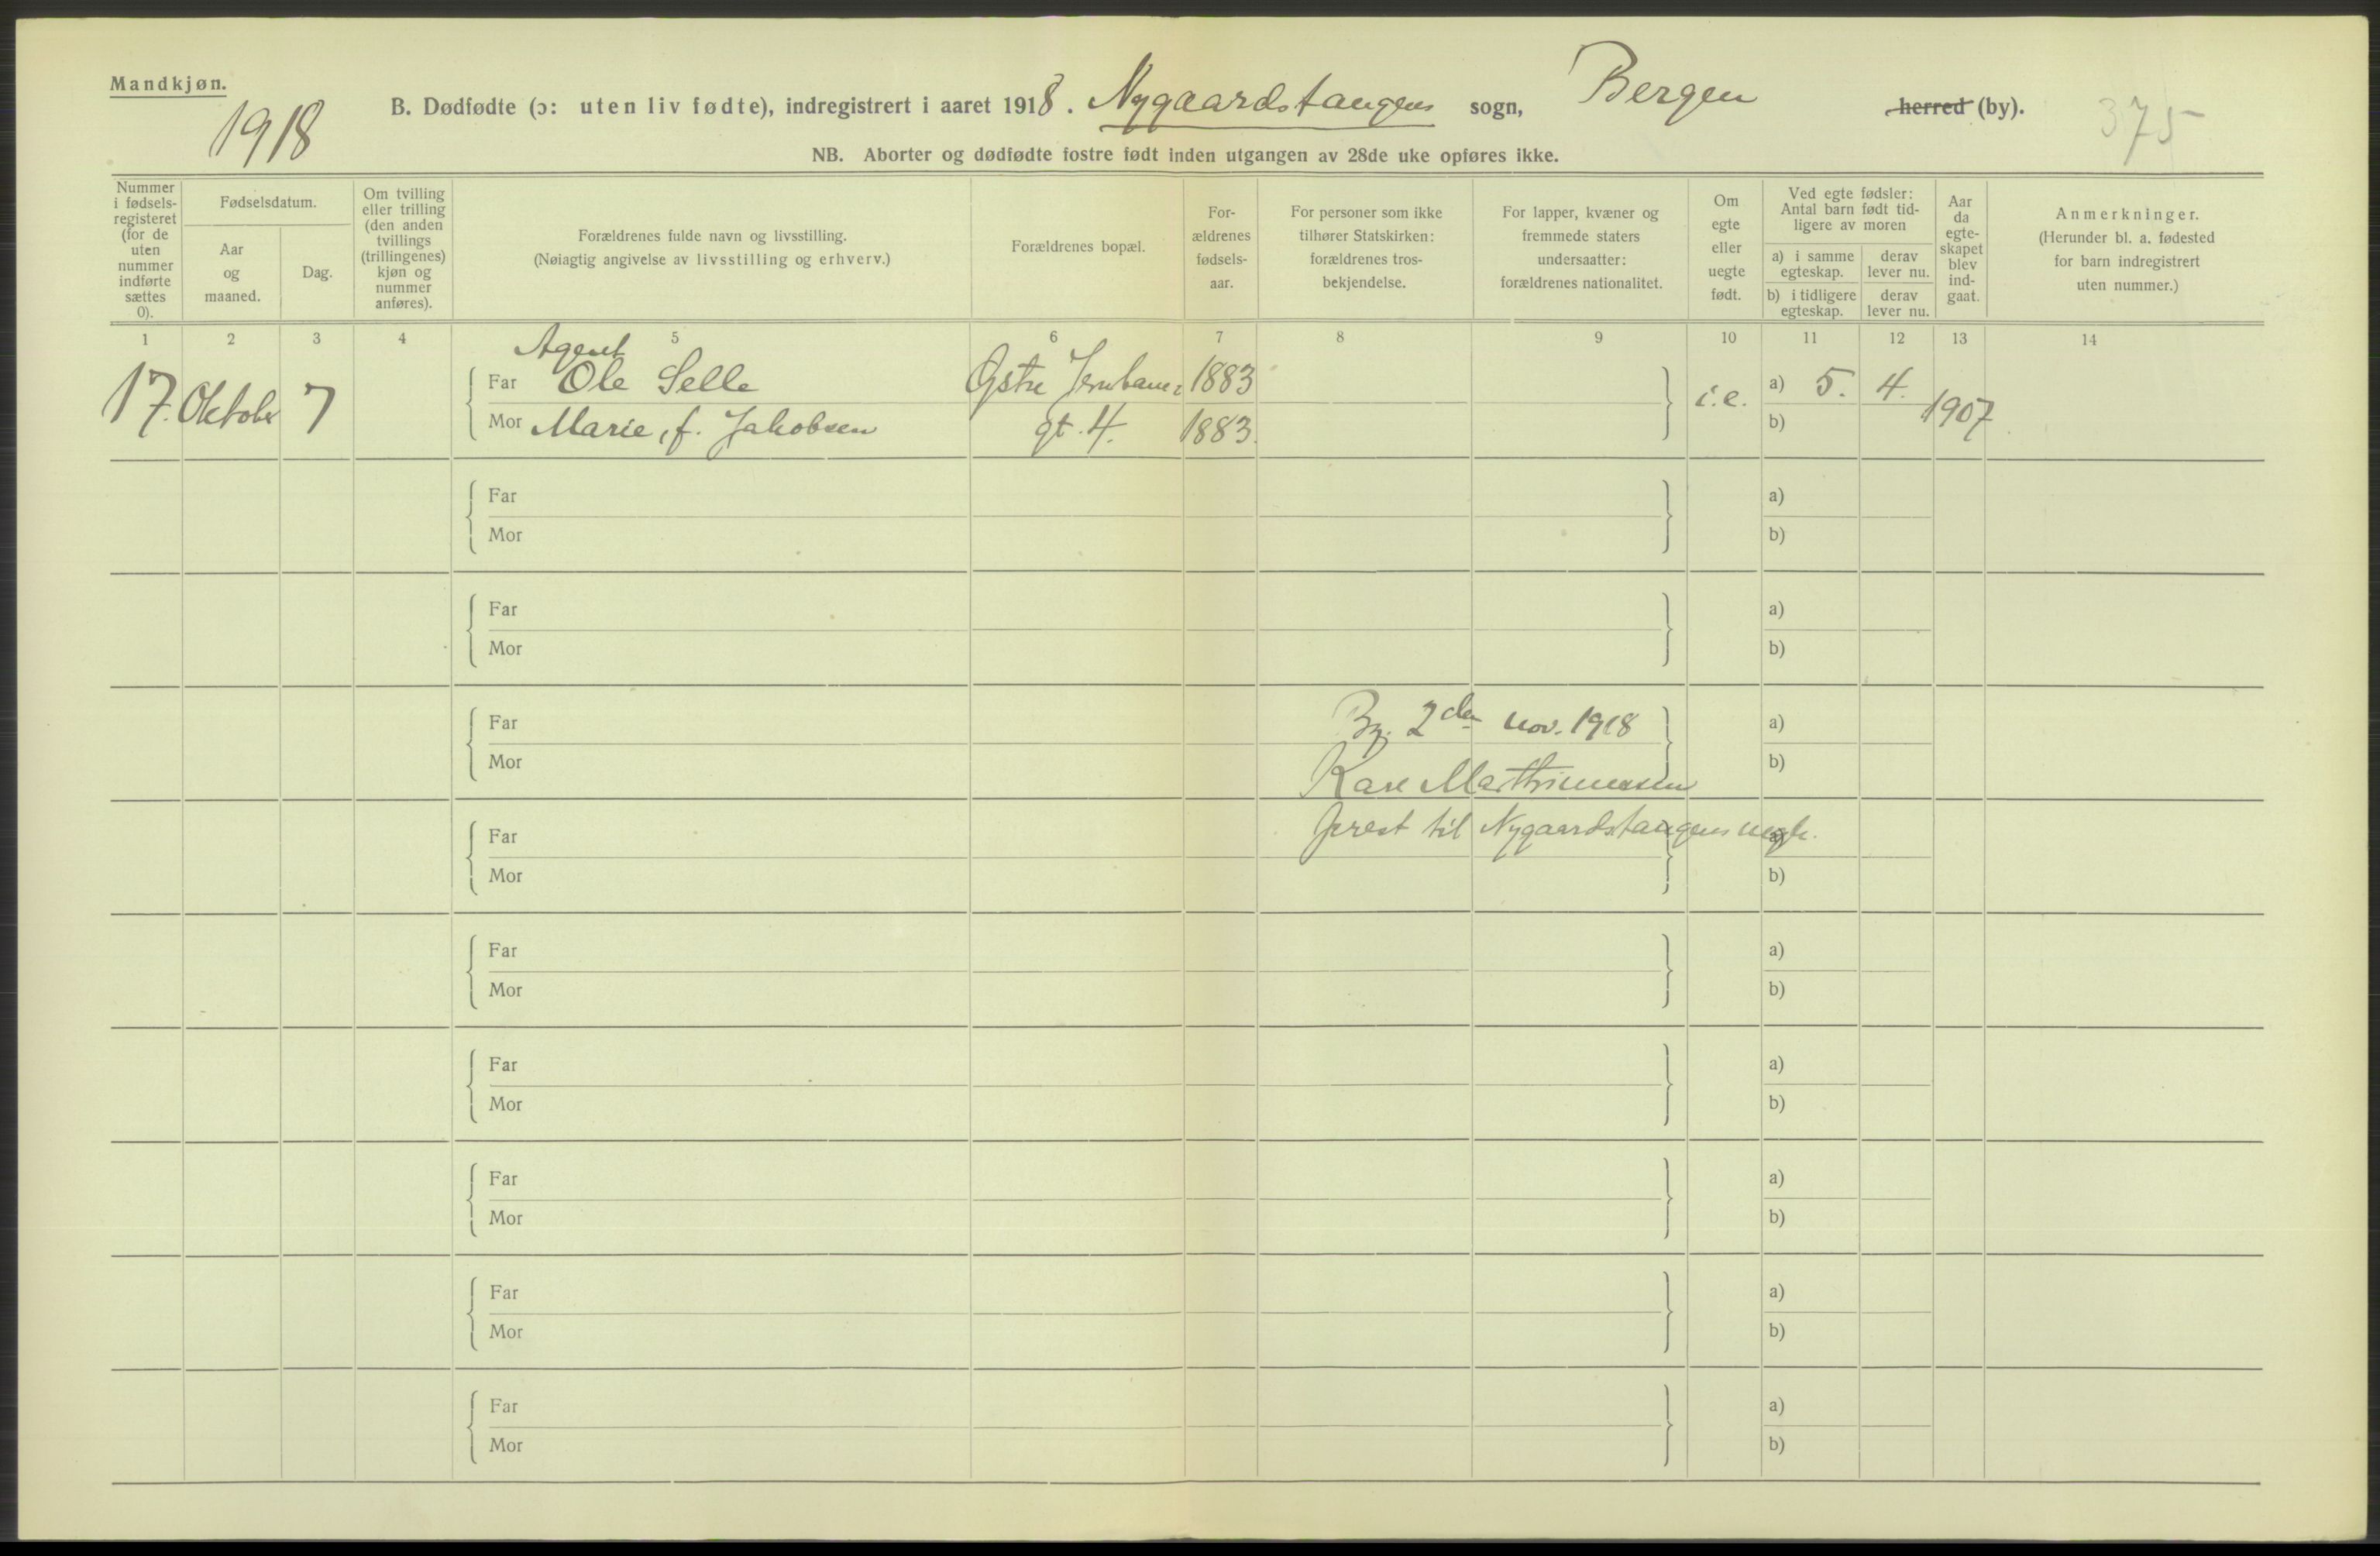 Mandkjøn.
1918
B. Dødfødte (ɔ: uten liv fødte), indregistrert i aaret 1918. Nygaardstangens sogn, Bergen herred (by).
375
NB. Aborter og dødfødte fostre født inden utgangen av 28de uke opføres ikke.
Nummer i fødsels-registeret (for de uten nummer indførte sættes 0).
Fødselsdatum.
Aar og maaned.
Dag.
Om tvilling eller trilling (den anden tvillings (trillingenes) kjøn og nummer anføres).
Forældrenes fulde navn og livsstilling.
(Nøiagtig angivelse av livsstilling og erhverv.)
Forældrenes bopæl.
For-ældrenes fødsels-aar.
For personer som ikke tilhører Statskirken: forældrenes tros-bekjendelse.
For lapper, kvæner og fremmede staters undersaatter: forældrenes nationalitet.
Om egte eller uegte født.
Ved egte fødsler: Antal barn født tid-ligere av moren
a) i samme egteskap.
derav lever nu.
b) i tidligere egteskap.
derav lever nu.
Aar da egte-skapet blev ind-gaat.
Anmerkninger.
(Herunder bl. a. fødested for barn indregistrert uten nummer.)
1 2 3 4 5 6 7 8 9 10 11 12 13 14
Agent
17. Oktober 7 Far Ole Selle Østre Jernbane 1883 i.e. a) 5. 4. 1907
Mor Marie, f. Jakobsen gt. 4. 1883. b)
Far a)
Mor b)
Far a)
Mor b)
Far Bg. 2den nov. 1918 a)
Mor b)
Far prest til Nygaardstangens mgh.
Mor b)
Far a)
Mor b)
Far a)
Mor b)
Far a)
Mor b)
Far a)
Mor b)
Far a)
Mor b)